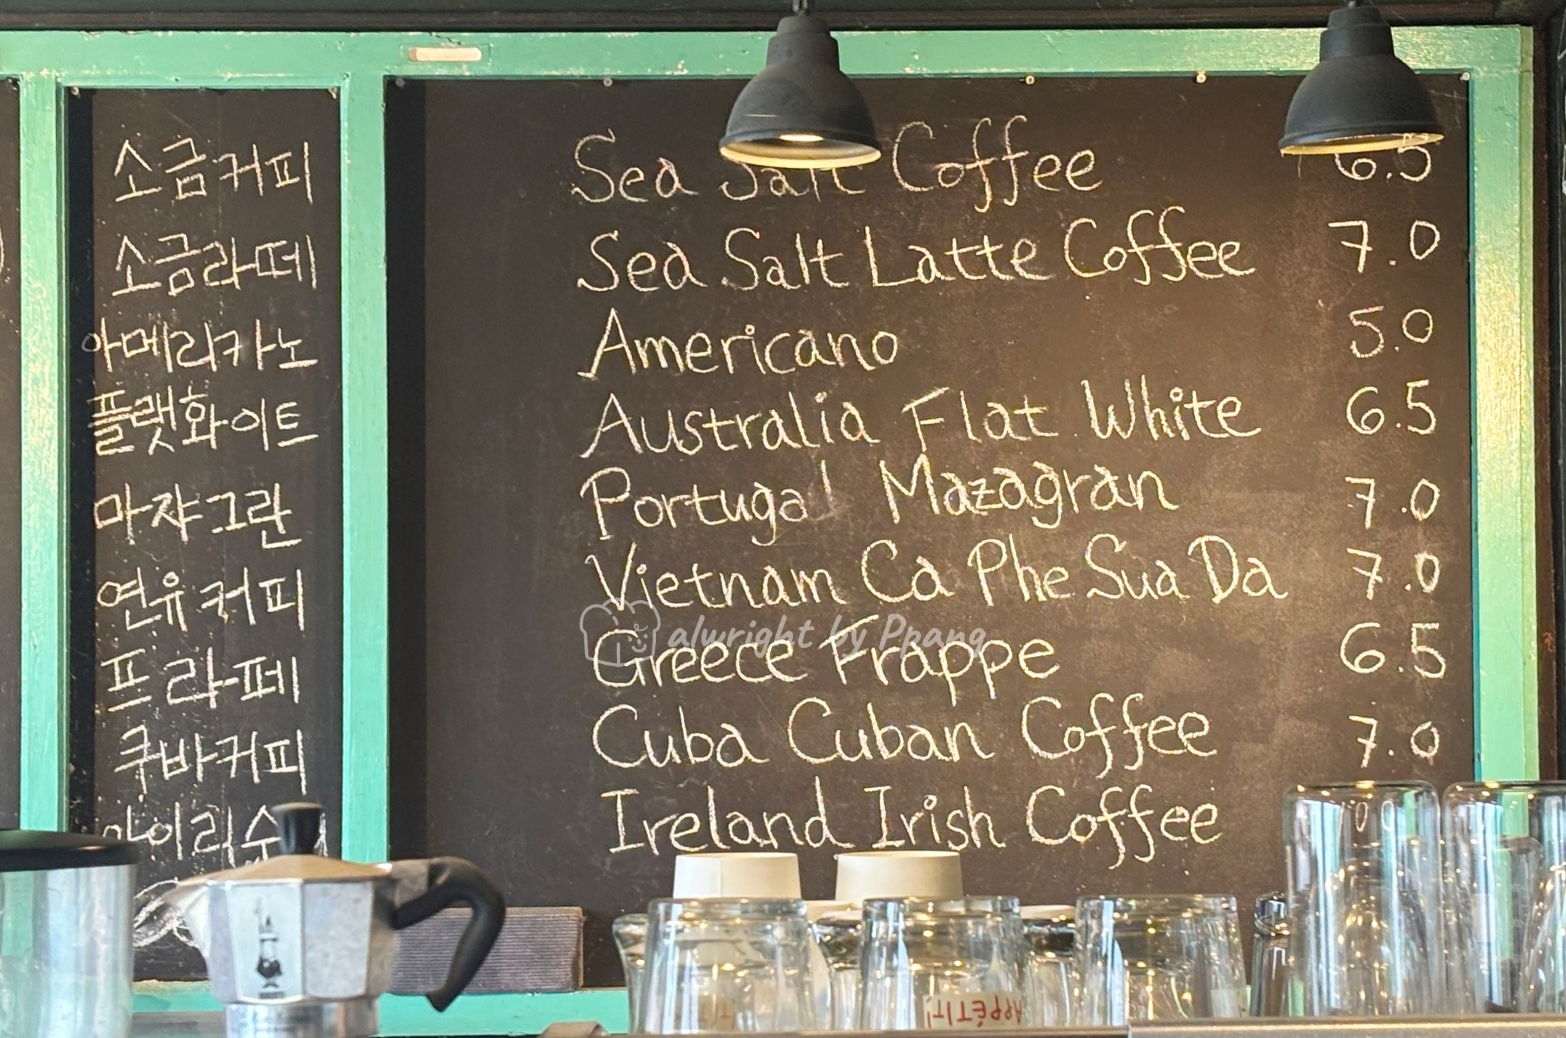 소금커피 Sea Salt Coffee 6.5
소금라떼 Sea Salt Latte Coffee 7.0
아메리카노 Americano 5.0
플랫화이트 Australia Flat White 6.5
마쟈그란 Portugal Mazagran 7.0
연유커피 Vietnam Ca Phe Sua Da 7.0
alwright by Ppang
프라페 Greece Frappe 6.5
쿠바커피 Cuba Cuban Coffee 7.0
Ireland Irish Coffee
APPÉTIT!